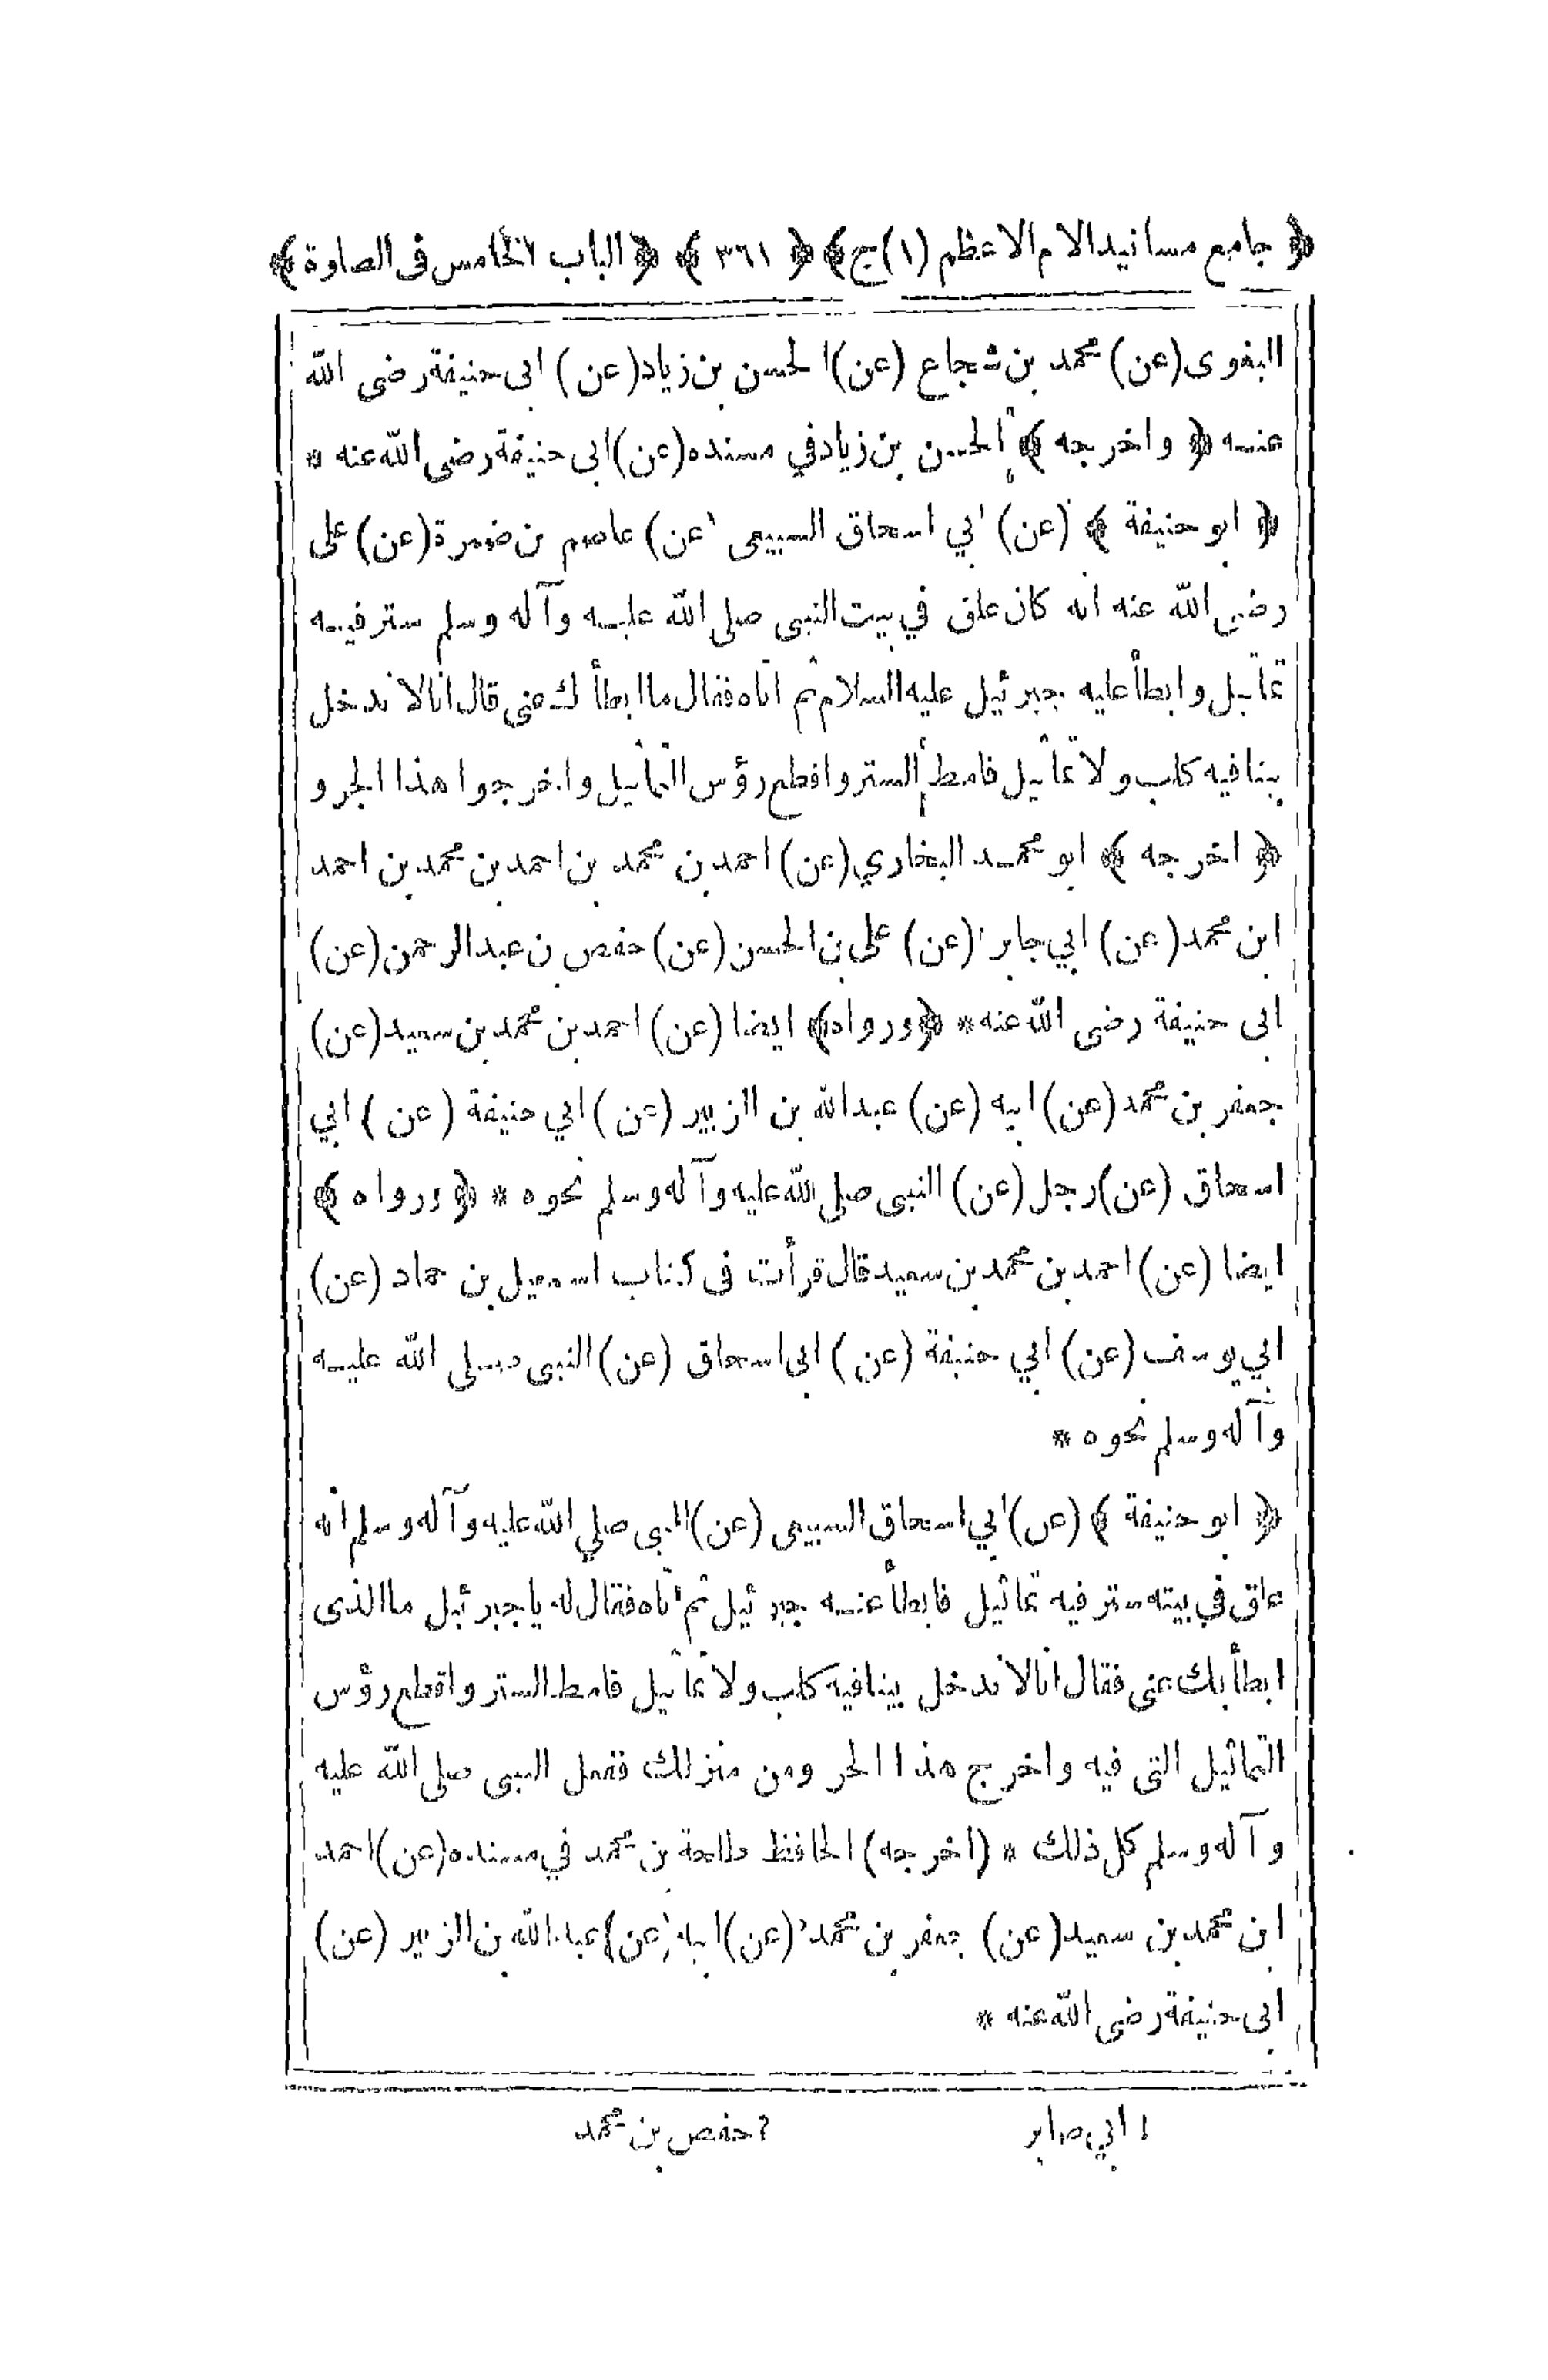 ﴿ جامع مسانيد الامام الاعظم (١) ج ﴾ ﴿ ٣٦١ ﴾ ﴿ الباب الخامس فى الصلوة ﴾
البغوى (عن) محمد بن شجاع (عن) الحسن بن زياد (عن) ابى حنيفة رضى الله
عنه ﴿ واخرجه ﴾ الحسن بن زياد في مسنده (عن) ابى حنيفة رضى الله عنه *
﴿ ابو حنيفة ﴾ (عن) ابي اسحاق السبيعى (عن) عاصم بن ضمرة (عن) على
رضى الله عنه انه كان علق في بيت النبى صلى الله عليه وآله وسلم ستر فيه
تماثيل وابطأ عليه جبرئيل عليه السلام ثم اتاه فقال ما ابطأ ك عنى قال انا لا ندخل
بيتا فيه كلب ولا تماثيل فامط الستر واقطع رؤس التماثيل واخرجوا هذا الجرو
﴿ اخرجه ﴾ ابو محمد البخاري (عن) احمد بن محمد بن احمد بن محمد بن احمد
ابن محمد (عن) ابي جابر ١ (عن) على بن الحسن (عن) حفص بن عبد الرحمن (عن)
ابى حنيفة رضى الله عنه * ﴿ورواه﴾ ايضا (عن) احمد بن محمد بن سعيد (عن)
جعفر بن محمد (عن) ابيه (عن) عبد الله بن الزبير (عن) ابي حنيفة (عن) ابي
اسحاق (عن) رجل (عن) النبى صلى الله عليه وآله وسلم نحوه * ﴿ ورواه ﴾
ايضا (عن) احمد بن محمد بن سعيد قال قرأت فى كتاب اسمعيل بن حماد (عن)
ابي يوسف (عن) ابي حنيفة (عن) ابى اسحاق (عن) النبى صلى الله عليه
وآله وسلم نحوه *
﴿ ابو حنيفة ﴾ (عن) ابي اسحاق السبيعى (عن) النبى صلي الله عليه وآله وسلم انه
علق في بيته ستر فيه تماثيل فابطأ عنه جبرئيل ثم اتاه فقال له يا جبرئيل ما الذى
ابطأ بك عنى فقال انا لا ندخل بيتا فيه كلب ولا تماثيل فامط الستر واقطع رؤس
التماثيل التى فيه واخرج هذا الجر ومن منزلك ففعل النبى صلى الله عليه
وآله وسلم كل ذلك * (اخرجه) الحافظ طلحة بن محمد في مسنده (عن) احمد
ابن محمد بن سعيد (عن) جعفر بن محمد ٢ (عن) ابيه (عن) عبد الله بن الزبير (عن)
ابى حنيفة رضى الله عنه *
١ ابي صابر
٢ حفص بن محمد